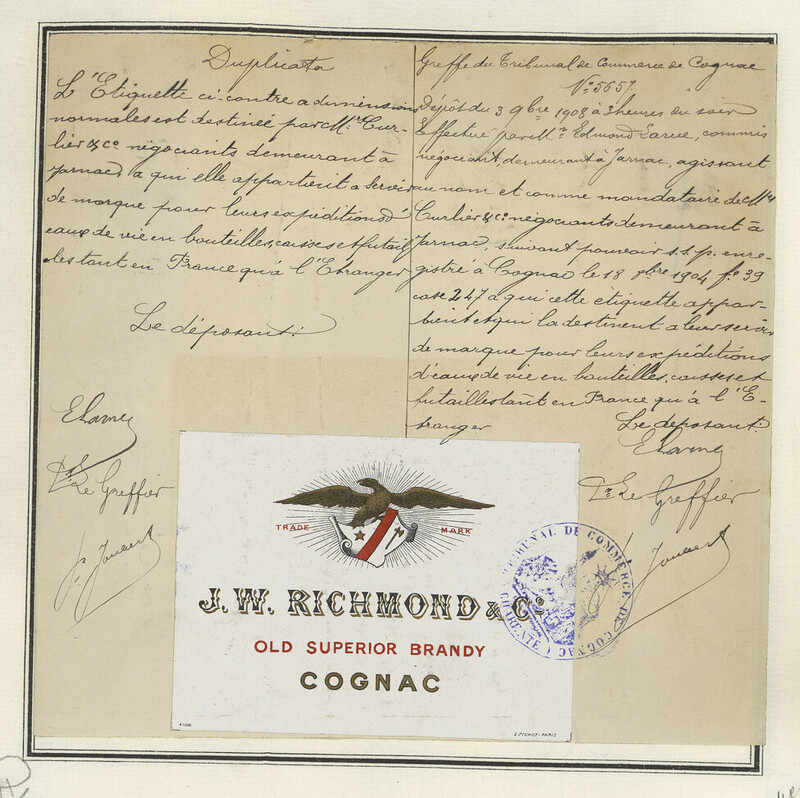 Duplicata
L'Etiquette ci-contre a dimensions
normales est destinée par Mrs Cur-
lier & Ce négociants demeurant à
Jarnac, a qui elle appartient a servir
de marque pour leurs expéditions d'
eaux de vie en bouteilles, caisses et futail-
les tant en France qu'à l'Etranger
Le déposant:
ELarue
Pr Le Greffier
Greffe du Tribunal de Commerce de Cognac
No 5657
Dépôt du 3 9bre 1908 à 3 heures du soir
Effectué par Mr Edmond Larue, commis
négociant, demeurant à Jarnac, agissant
au nom et comme mandataire de Mrs
Curlier & Ce négociants demeurant à
Jarnac, suivant pouvoir s.s.p. enre-
gistré à Cognac le 18 8bre 1904, fo 39
case 247 à qui cette étiquette appar-
tient et qui la destinent a leur servir
de marque pour leurs expéditions
d'eaux de vie en bouteilles, caisses et
futailles tant en France qu'à l'E-
tranger
Le déposant:
ELarue
Pr Le Greffier
TRADE MARK
J. W. RICHMOND & Co
OLD SUPERIOR BRANDY
COGNAC
E. PICHOT-PARIS
TRIBUNAL DE COMMERCE DE COGNAC (CHARENTE)